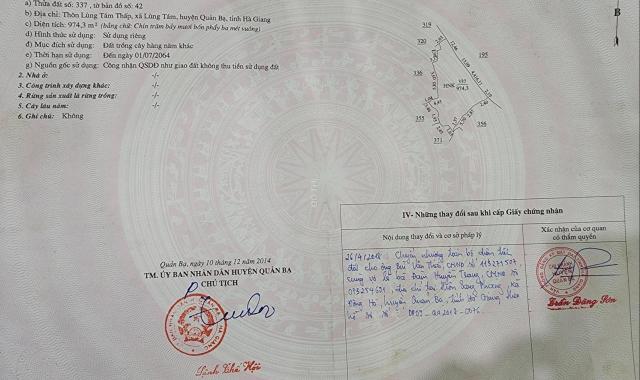 a) Thửa đất số: 337 , tờ bản đồ số: 42
b) Địa chỉ: Thôn Lùng Tám Thấp, xã Lùng Tám, huyện Quản Bạ, tỉnh Hà Giang
c) Diện tích: 974,3 m² (bằng chữ: Chín trăm bảy mươi bốn phẩy ba mét vuông)
d) Hình thức sử dụng: Sử dụng riêng
đ) Mục đích sử dụng: Đất trồng cây hàng năm khác
e) Thời hạn sử dụng: Đến ngày 01/07/2064
g) Nguồn gốc sử dụng: Công nhận QSDĐ như giao đất không thu tiền sử dụng đất
2. Nhà ở: -/-
3. Công trình xây dựng khác: -/-
4. Rừng sản xuất là rừng trồng: -/-
5. Cây lâu năm: -/-
6. Ghi chú: Không
319
320
195
336
HNK 337
974,3
355
356
371
Quản Bạ, ngày 10 tháng 12 năm 2014
TM. ỦY BAN NHÂN DÂN HUYỆN QUẢN BẠ
CHỦ TỊCH
IV- Những thay đổi sau khi cấp Giấy chứng nhận
Nội dung thay đổi và cơ sở pháp lý
Xác nhận của cơ quan có thẩm quyền
26/4/2018 Chuyển nhượng toàn bộ diện tích
đất cho ông Bùi Văn CMND số
vợ là bà Đàm Huyền Trang, CMND số
073254631, địa chỉ tại xã
huyện Quản Bạ, tỉnh Hà Giang theo
hồ sơ số
Trần Đăng